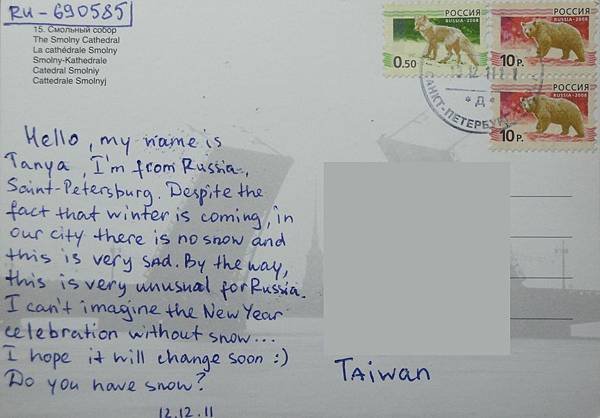 RU-690585
15. Смольный собор
The Smolny Cathedral
La cathédrale Smolny
Smolny-Kathedrale
Catedral Smolniy
Cattedrale Smolnyj
РОССИЯ
RUSSIA-2008
0.50
РОССИЯ
RUSSIA-2008
10 Р.
РОССИЯ
RUSSIA-2008
10 Р.
САНКТ-ПЕТЕРБУРГ
* Д *
Hello, my name is
Tanya, I'm from Russia,
Saint-Petersburg. Despite the
fact that winter is coming, in
our city there is no snow and
this is very sad. By the way,
this is very unusual for Russia.
I can't imagine the New Year
celebration without snow...
I hope it will change soon :)
Do you have snow?
12.12.11
Taiwan